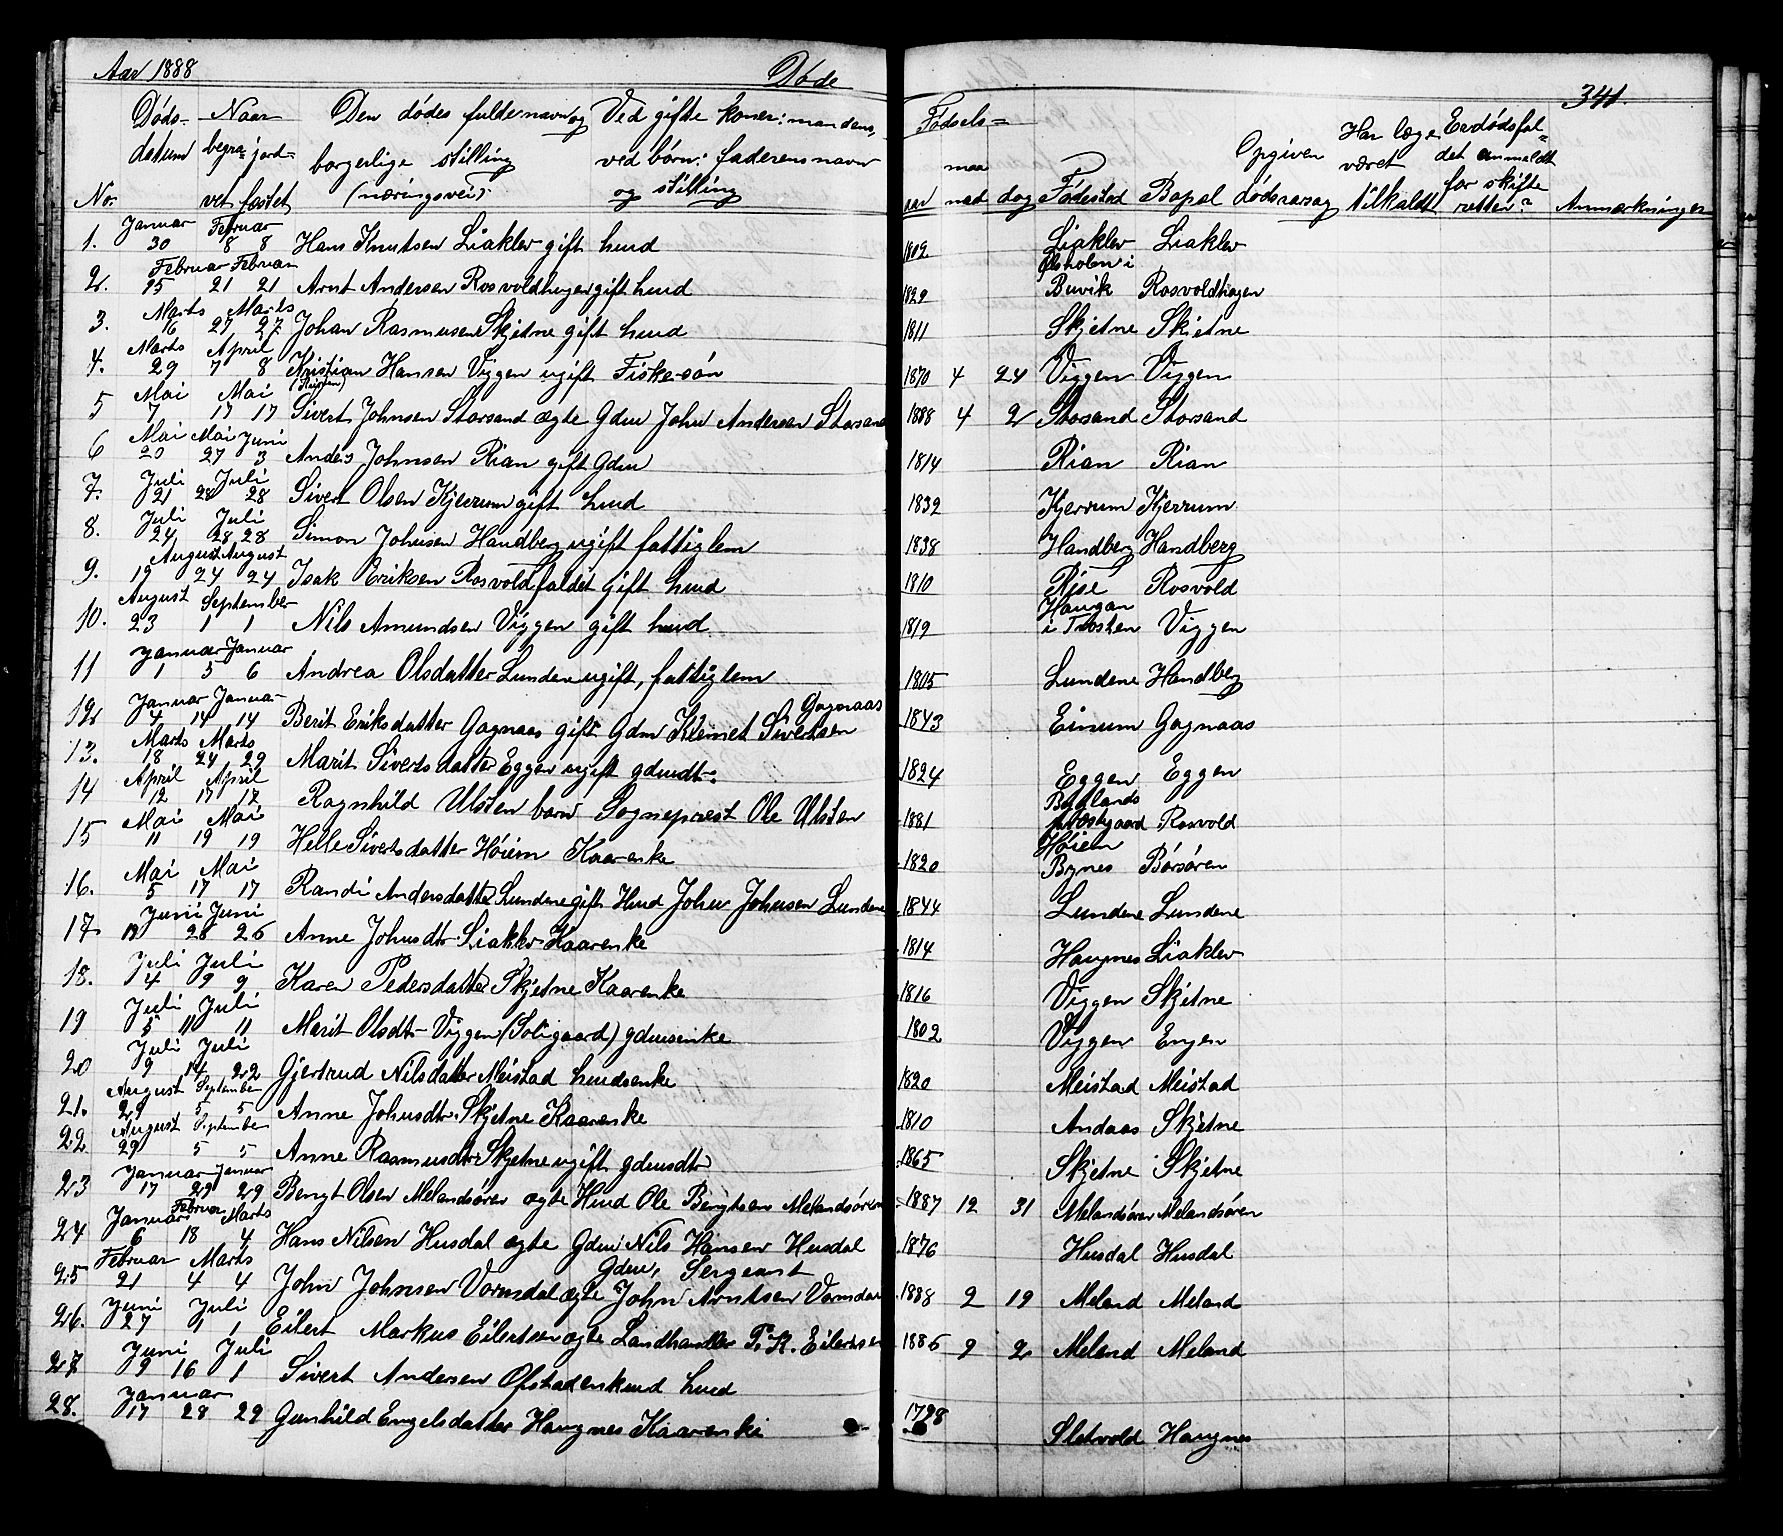 Aar 1888 Døde 341.
No. Døds-datum Naar begra-vet jord-fæstet Den dødes fulde navn og borgerlige stilling (næringsvei). Ved gifte koner: mandens, ved børn: faderens navn og stilling Fødsels- aar maa-ned dag Fødested Bopæl Opgiven dødsaarsag Har læge været tilkaldt Er dødsfal-det anmeldt for skifte retten? Anmærkninger
1. Januar 30 Februar 8 8 Hans Knutsen Liaklev gift hmd 1809 Liaklev Liaklev
2. Februar 15 Februar 21 21 Arnt Andersen Rosvoldhagen gift hmd 1829 Ølsholm i Buvik Rosvoldhagen
3. Marts 16 Marts 27 27. Johan Rasmusen Skjetne gift hmd 1811 Skjetne Skjetne
4. Marts 29 April 7 8 Kristian Hansen Viggen ugift Fiske-søn 1870 4 24 Viggen Viggen
5 Mai 7 Mai 17 17 Sivert Johnsen Storsand ægte Gdm John Andersen Storsand 1888 4 2 Storsand Storsand
6 Mai 20 Mai 27 Juni 3 Anders Johnsen Rian gift Gdm 1814 Rian Rian
7. Juli 21 Juli 28 28 Sivert Olsen Kjerrum gift hmd 1832 Kjerrum Kjerrum
8. Juli 24 Juli 28 28 Simon Johnsen Handberg ugift fattiglem 1838 Handberg Handberg
9. August 19 August 24 24 Isak Eriksen Rosvoldfaldet gift hmd 1810 Rise Rosvold
10. August 23 September 1 1 Nils Amundsen Viggen gift hmd 1819 Haugan i Tristen Viggen
11 Januar 1 Januar 5 6 Andrea Olsdatter Lundene ugift, fattiglem 1805 Lundene Handberg
12 Januar 4 Januar 14 14 Berit Eriksdatter Gagnaas gift Gdm Klemet Sivertsen Gagnaas 1843 Einum Gagnaas
13. Marts 18 Marts 24 29 Marit Sivertsdatter Eggen ugift gdmdt. 1824 Eggen Eggen
14 April 12 April 17 17 Ragnhild Ulsten barn Sogneprest Ole Ulsten 1881 Præstgaard Rosvold
15 Mai 11 Mai 19 19 Helle Sivertsdatter Høiem Kaarenke 1820 Høiem Bynes Børsøren
16. Mai 5 Mai 17 17 Randi Andersdatter Lundene gift Hmd John Johnsen Lundene 1844 Lundene Lundene
17 Juni 19 Juni 26 26 Anne Johnsdtr Liaklev Kaarenke 1814 Haugnes Liaklev
18. Juli 4 Juli 9 9 Karen Pedersdatter Skjetne Kaarenke 1816 Viggen Skjetne
19 Juli 5 Juli 11 11 Marit Olsdtr Viggen (Soligaard) gdmsenke 1802 Viggen Engen
20 Juli 9 Juli 14 22 Gjertrud Nilsdatter Meistad hmdsenke 1820 Meistad Meistad
21. August 29 September 5 5 Anne Johnsdtr. Skjetne Kaarenke 1810 Andaas Skjetne
22 August 29 September 5 5 Anne Rasmusdtr Skjetne ugift gdmsdtr 1865 Skjetne Skjetne
23 Januar 17 Januar 29 29 Bengt Olsen Melandsøren ægte Hmd Ole Bengtsen Melandsøren 1887 12 31 Melandsøren Melandsøren
24 Januar 6 Februar 18 Marts 4 Hans Nilsen Husdal ægte Gdm Nils Hansen Husdal 1876 Husdal Husdal
25 Februar 21 Marts 4 4 John Johnsen Vormdal ægte Gdm, Sergeant John Arntsen Vormdal 1888 2 19 Meland Meland
26. Juni 27 Juli 1 1 Eilert Markus Eilertsen ægte Landhandler P. K. Eilertsen 1886 9 2 Meland Meland
27 Juni 9 16 Juli 1 Sivert Andersen Ofstad enkmd hmd
28. Januar 17 28 29 Gunhild Engelsdatter Haugnes Kaarenke 1798 Sletvold Haugnes